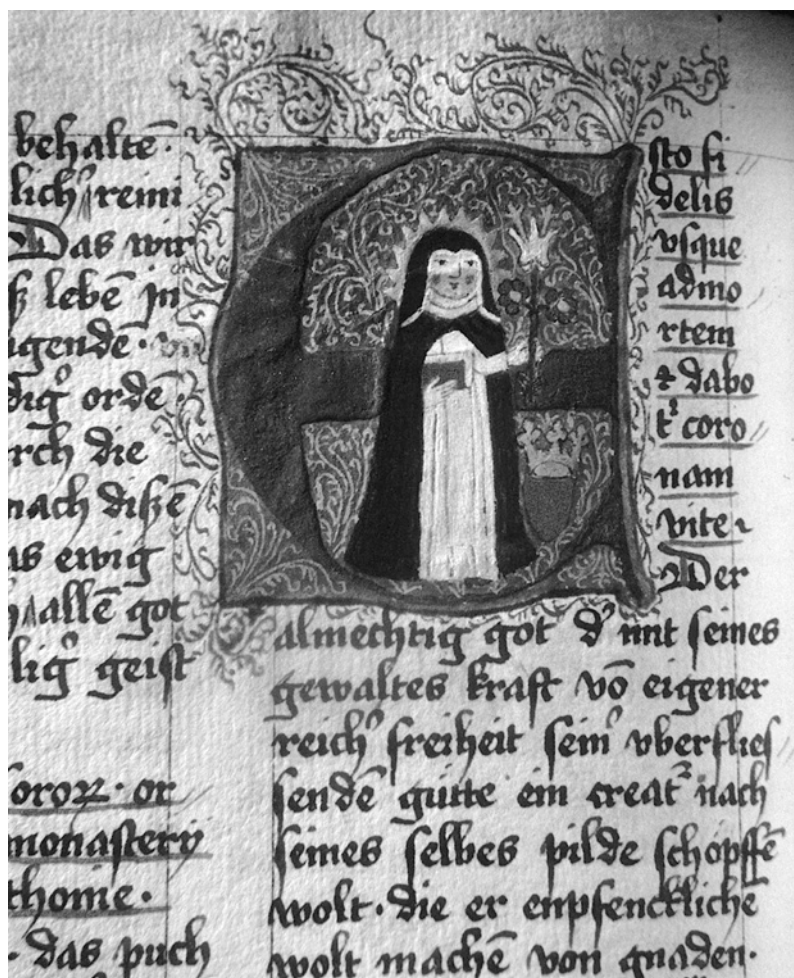 behaltē·
lich reini
Das wir
lebē in
igendē·
dig orde
rch die
nach dißē
as ewig
allē got
lig geist
soroꝝ· or
monastery
thome·
· das puch
E
sto fi
delis
vsque
admo
rtem
⁊ dabo
t̾ coro
nam
vite
Der
almechtig got d̾ mit seines
gewaltes kraft vō eigener
reich̾ freiheit sein̾ vberflies
sendē gütte ein creat̾ nach
seines selbes pilde schöpffē
wolt· die er enpfencklichē
wolt machē von gnaden·